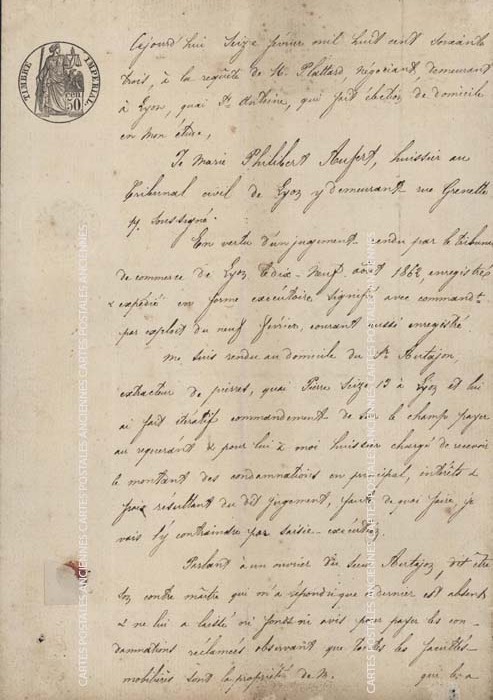 TIMBRE IMPERIAL
50 CEN
Aujourd'hui Seize février mil huit cent soixante
trois, à la requête de M. Plattard, négociant, demeurant
à Lyon, quai St Antoine, qui fait élection de domicile
en mon étude,
Je Marie Philibert Aufert, huissier au
Tribunal civil de Lyon y demeurant rue Grenette
soussigné.
En vertu d'un jugement rendu par le tribunal
de commerce de Lyon le dix-neuf août 1862, enregistré
& expédié en forme exécutoire, signifié avec commandt
par exploit du neuf février, courant aussi enregistré.
me suis rendu au domicile du Sr Autajon,
extracteur de pierres, quai Pierre Scize 13 à Lyon et lui
ai fait itératif commandement de sur le champ payer
au requérant & pour lui à moi huissier chargé de recevoir
le montant des condamnations en principal, intérêts &
frais résultant du dit jugement, faute de quoi faire, je
vais l'y contraindre par saisie-exécution.
Parlant à un ouvrier du sieur Autajon, dit être
son contre maître qui m'a répondu que ce dernier est absent
& ne lui a laissé ni fonds ni avis pour payer les con-
damnations réclamées observant que toutes les facultés
mobilières sont la propriété de M. qui l'a
CARTES POSTALES ANCIENNES CARTES POSTALES ANCIENNES CARTES POSTALES ANCIENNES
CARTES POSTALES ANCIENNES CARTES POSTALES ANCIENNES CARTES POSTALES ANCIENNES